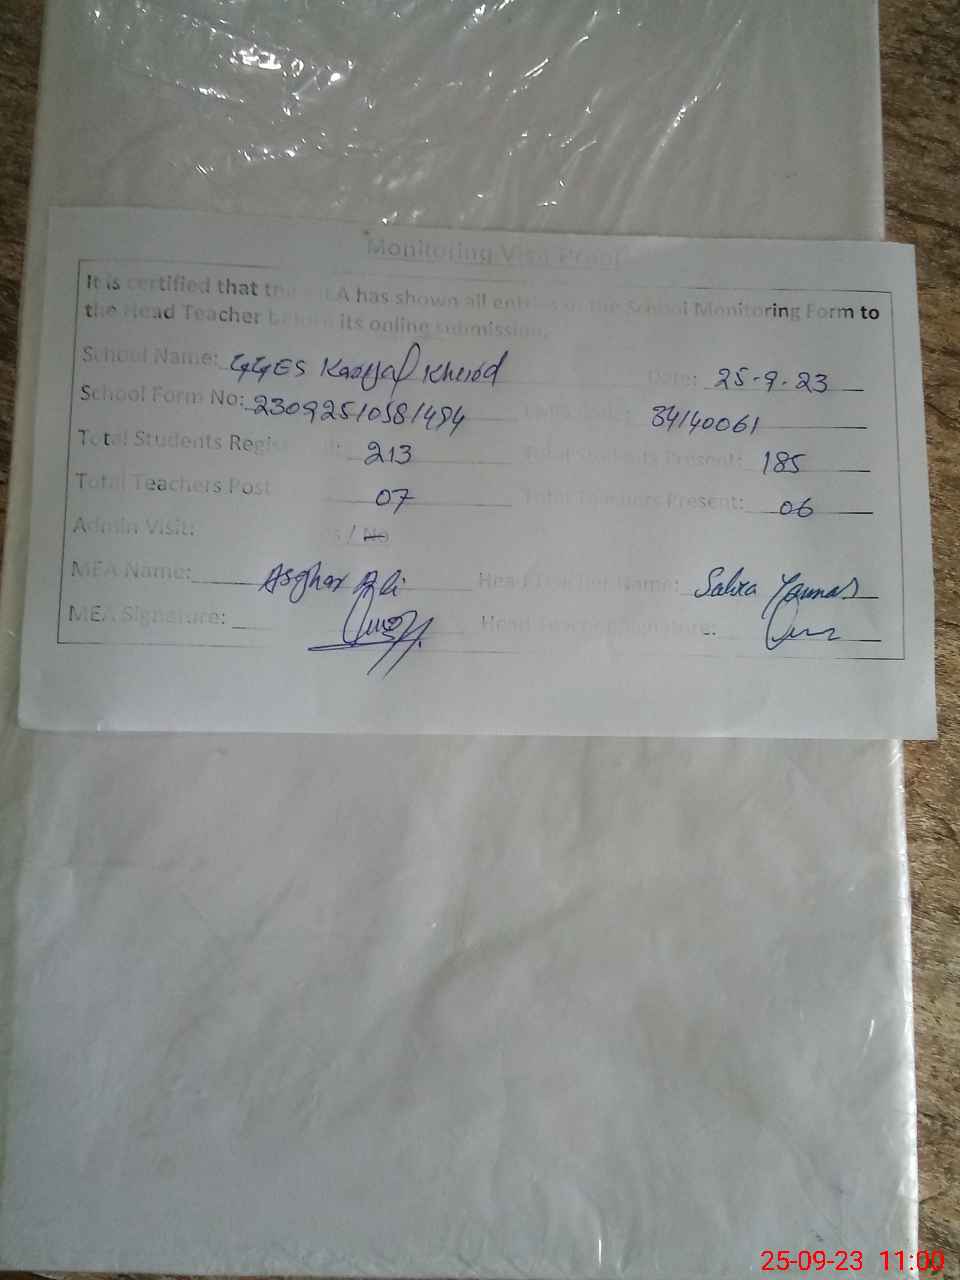 Monitoring Visit Proof
It is certified that the MEA has shown all entries in the School Monitoring Form to
the Head Teacher before its online submission.
School Name: GGES Khurd Date: 25-9-23
School Form No: 84140061
Total Students Registered: 213 Total Students Present: 185
Total Teachers Post 07 Total Teachers Present: 06
Admin Visit: Yes / No
MEA Name: Asghar Ali Head Teacher Name: Younas
MEA Signature: Head Teacher Signature:
25-09-23 11:00